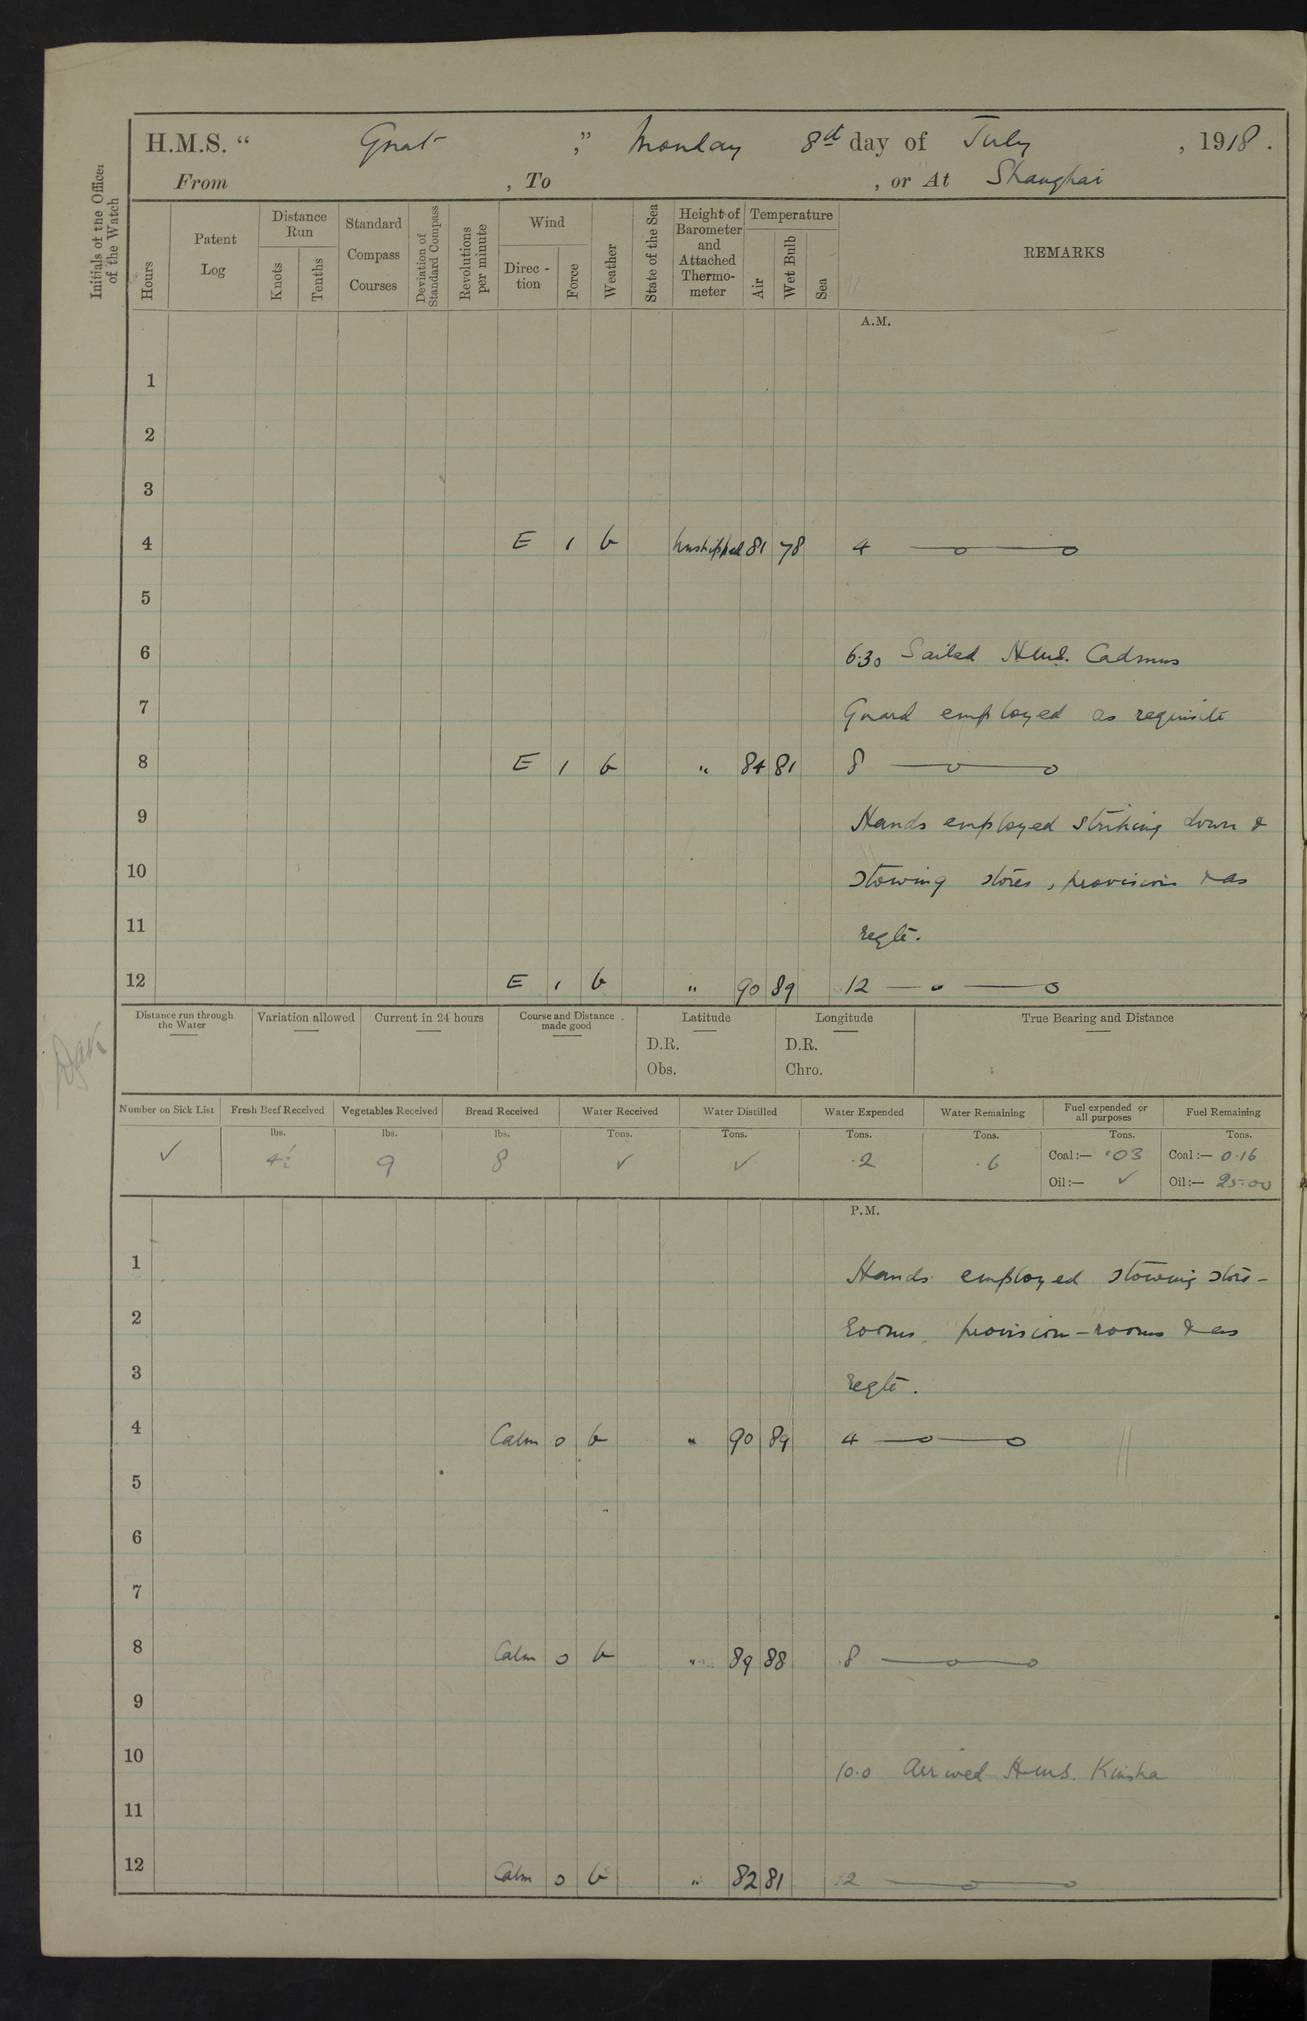 H.M.S. “ Gnat ,” Monday 8th day of July , 1918 .
From , To , or At Shanghai
Initials of the Officer of the Watch
Hours
Patent Log
Distance Run
Knots
Tenths
Standard Compass Courses
Deviation of Standard Compass
Revolutions per minute
Wind
Direc - tion
Force
Weather
State of the Sea
Height of Barometer and Attached Thermo- meter
Temperature
Air
Wet Bulb
Sea
REMARKS
A.M.
1
2
3
4 E 1 b Unshipped 81 78 4
5
6 6.30 Sailed H.M.S. Cadmus
7 Guard employed as requisite
8 E 1 b " 84 81 8
9 Hands employed striking down &
10 stowing stores, provisions & as
11 reqte.
12 E 1 b " 90 89 12
Distance run through the Water
Variation allowed
Current in 24 hours
Course and Distance made good
Latitude
D.R.
Obs.
Longitude
D.R.
Chro.
True Bearing and Distance
Number on Sick List ✓
Fresh Beef Received lbs. 4½
Vegetables Received lbs. 9
Bread Received lbs. 8
Water Received Tons. ✓
Water Distilled Tons. ✓
Water Expended Tons. .2
Water Remaining Tons. .6
Fuel expended or all purposes Tons.
Coal :— .03
Oil :— ✓
Fuel Remaining Tons.
Coal :— 0.16
Oil :— 25.00
P.M.
1 Hands employed stowing store-
2 rooms, provision-rooms & as
3 reqte.
4 Calm 0 b " 90 89 4
5
6
7
8 Calm 0 b " 89 88 8
9
10 10.0 Arrived H.M.S. Kinsha
11
12 Calm 0 b " 82 81 12